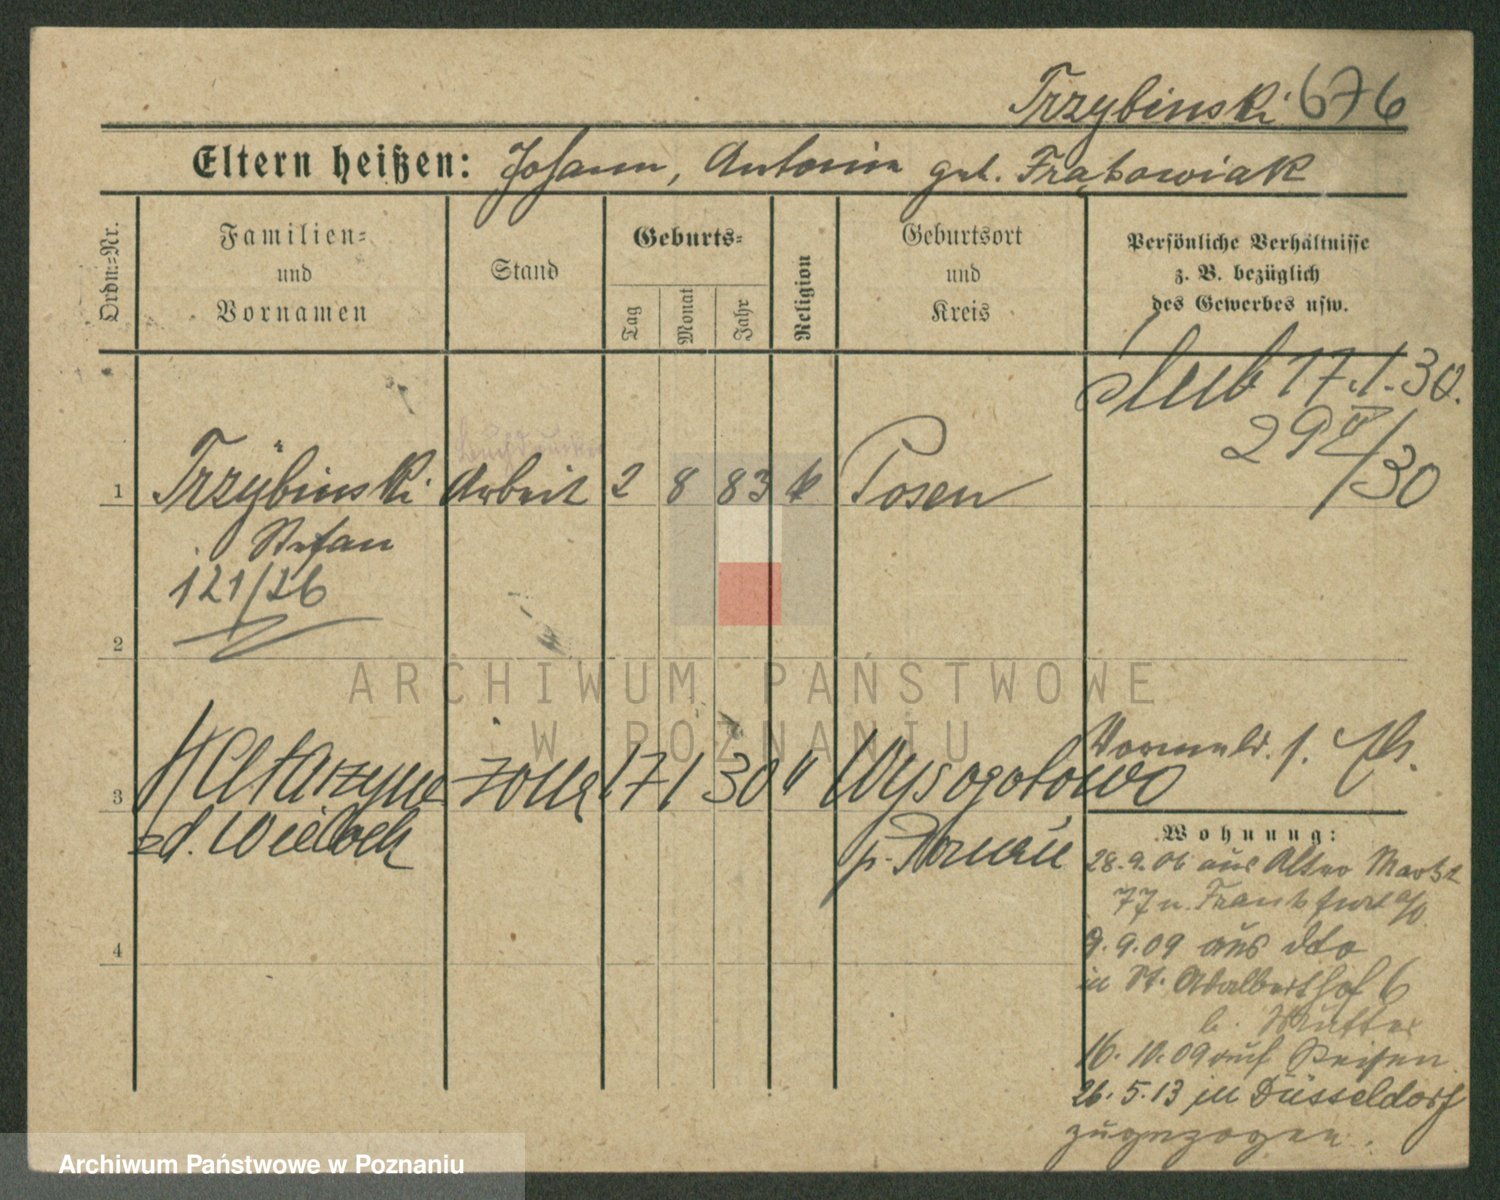 Trzybinski 676
Eltern heißen: Johann, Antonina geb. Frątowiak
Ordn.-Nr.
Familien-
und
Vornamen
Stand
Geburts-
Tag
Monat
Jahr
Religion
Geburtsort
und
Kreis
Persönliche Verhältnisse
z. B. bezüglich
des Gewerbes usw.
ślub 17.1.30.
29 /30
1 Trzybinski Arbeit 2 8 83 k Posen
Stefan
121/26
2
3 Katarzyna żona 17 1 30 " Wysogotowo
zd. Wieloch
p.
Wohnung:
28.9.06 aus Alter Markt
77 n. Frankfurt a/O
9.9.09 aus dto
in St. Adalberthof 6
b. Mutter
16.10.09 auf Reisen
26.5.13 in Düsseldorf
zugezogen.
4
ARCHIWUM PAŃSTWOWE
W POZNANIU
Archiwum Państwowe w Poznaniu